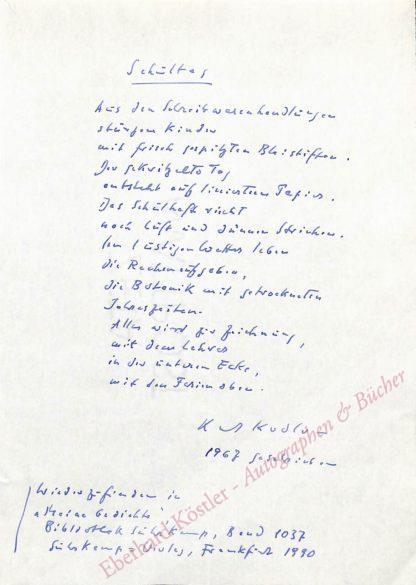 Schultag
Aus den Schreibwarenhandlungen
stürzen Kinder
mit frisch gespitzten Bleistiften.
Der gekritzelte Tag
entsteht auf liniertem Papier.
Das Schulheft riecht
nach Luft und dünnen Strichen.
Im lustigen Wetter leben
die Rechenaufgaben,
die Botanik mit getrockneten
Jahreszeiten.
Alles wird zur Zeichnung,
mit dem Lehrer
in der unteren Ecke,
mit den Ferien oben.
1967 geschrieben
wiederzufinden in
"Meine Gedichte"
Bibliothek Suhrkamp, Band 1037
Suhrkamp-Verlag, Frankfurt 1990
Eberhard Köstler - Autographen & Bücher